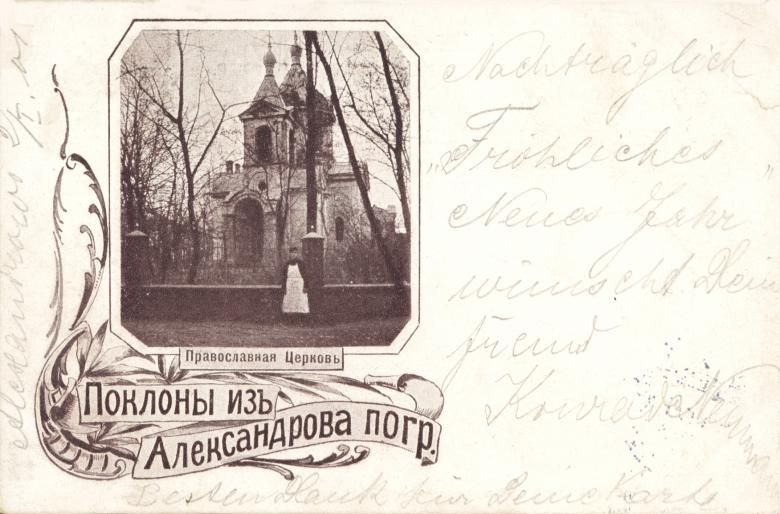 Nachträglich
„Fröhliches
Neues Jahr
wünscht Dein
freund
Konrad
Православная Церковь
Поклоны изъ
Александрова погр.
Besten Dank für Deine Karte.